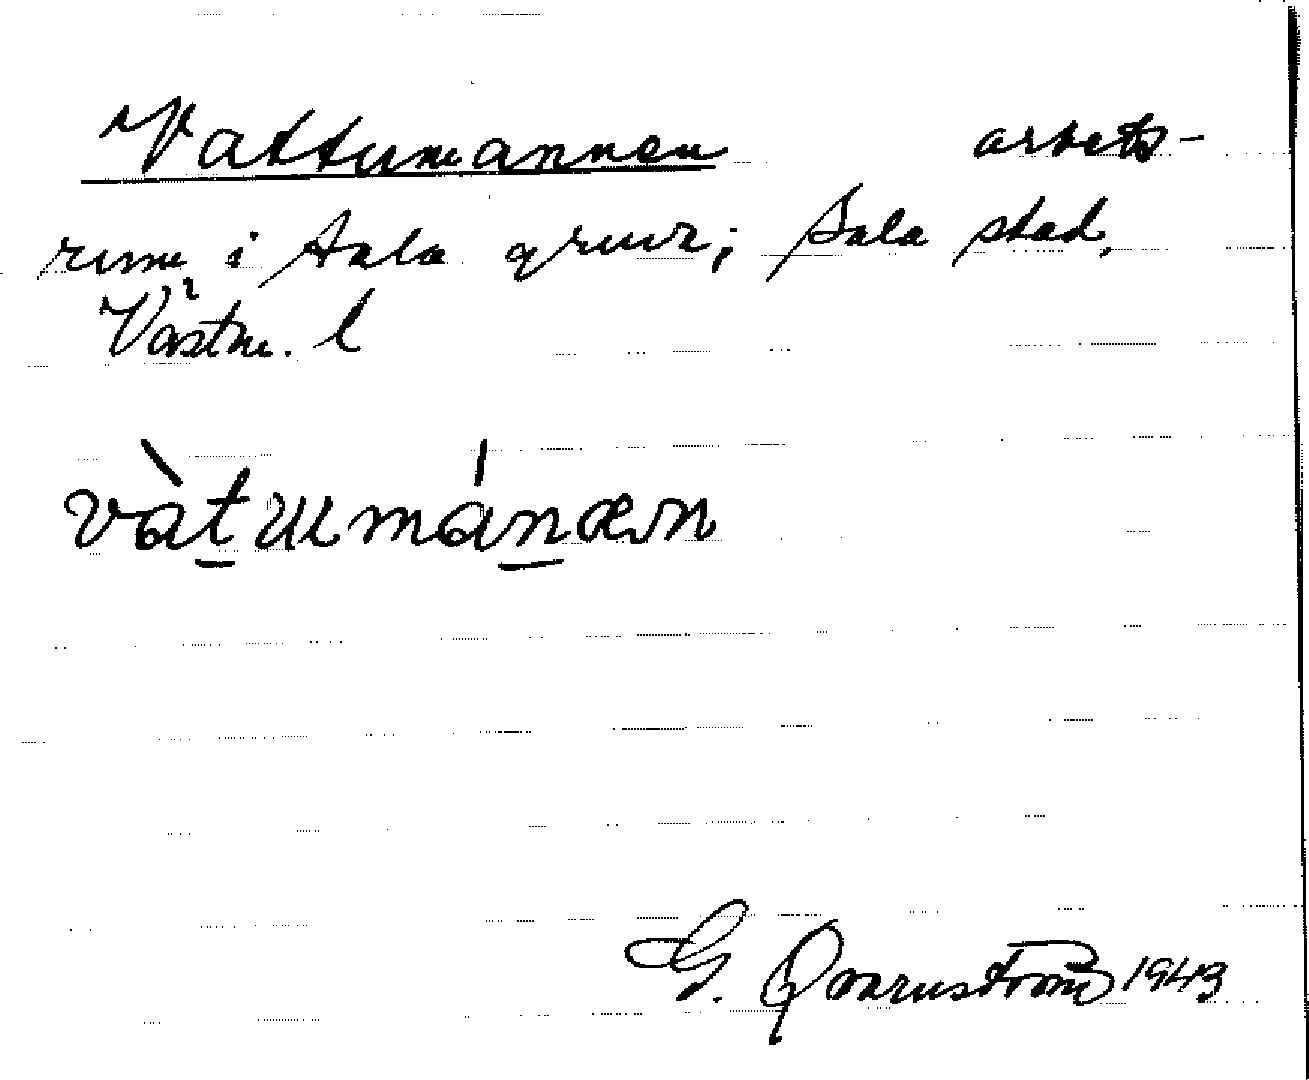 Vattumannen arbets-
rum i Sala gruva; Sala stad,
Västm. l
vàtumánæn
G. Qvarnström 1943